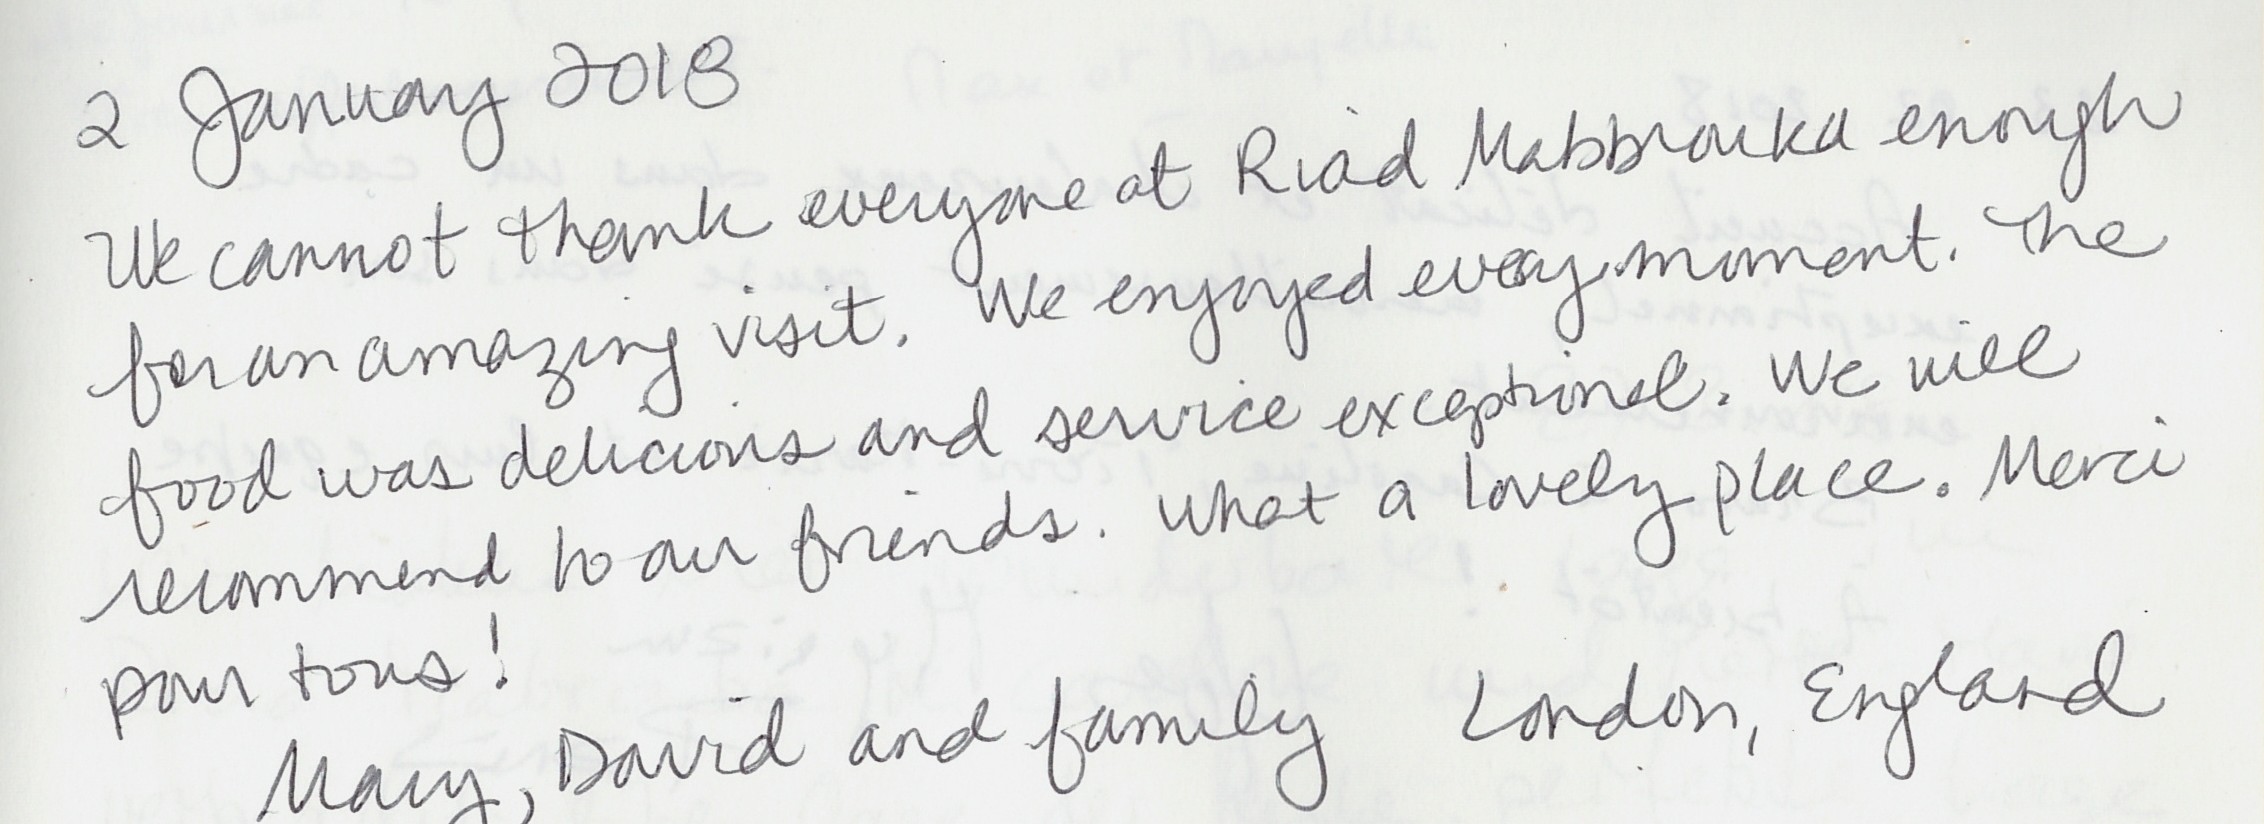 2 January 2018
We cannot thank everyone at Riad Mabbrouka enough
for an amazing visit. We enjoyed every moment. The
food was delicious and service exceptional. We will
recommend to our friends. What a lovely place. Merci
pour tous!
Mary, David and family London, England